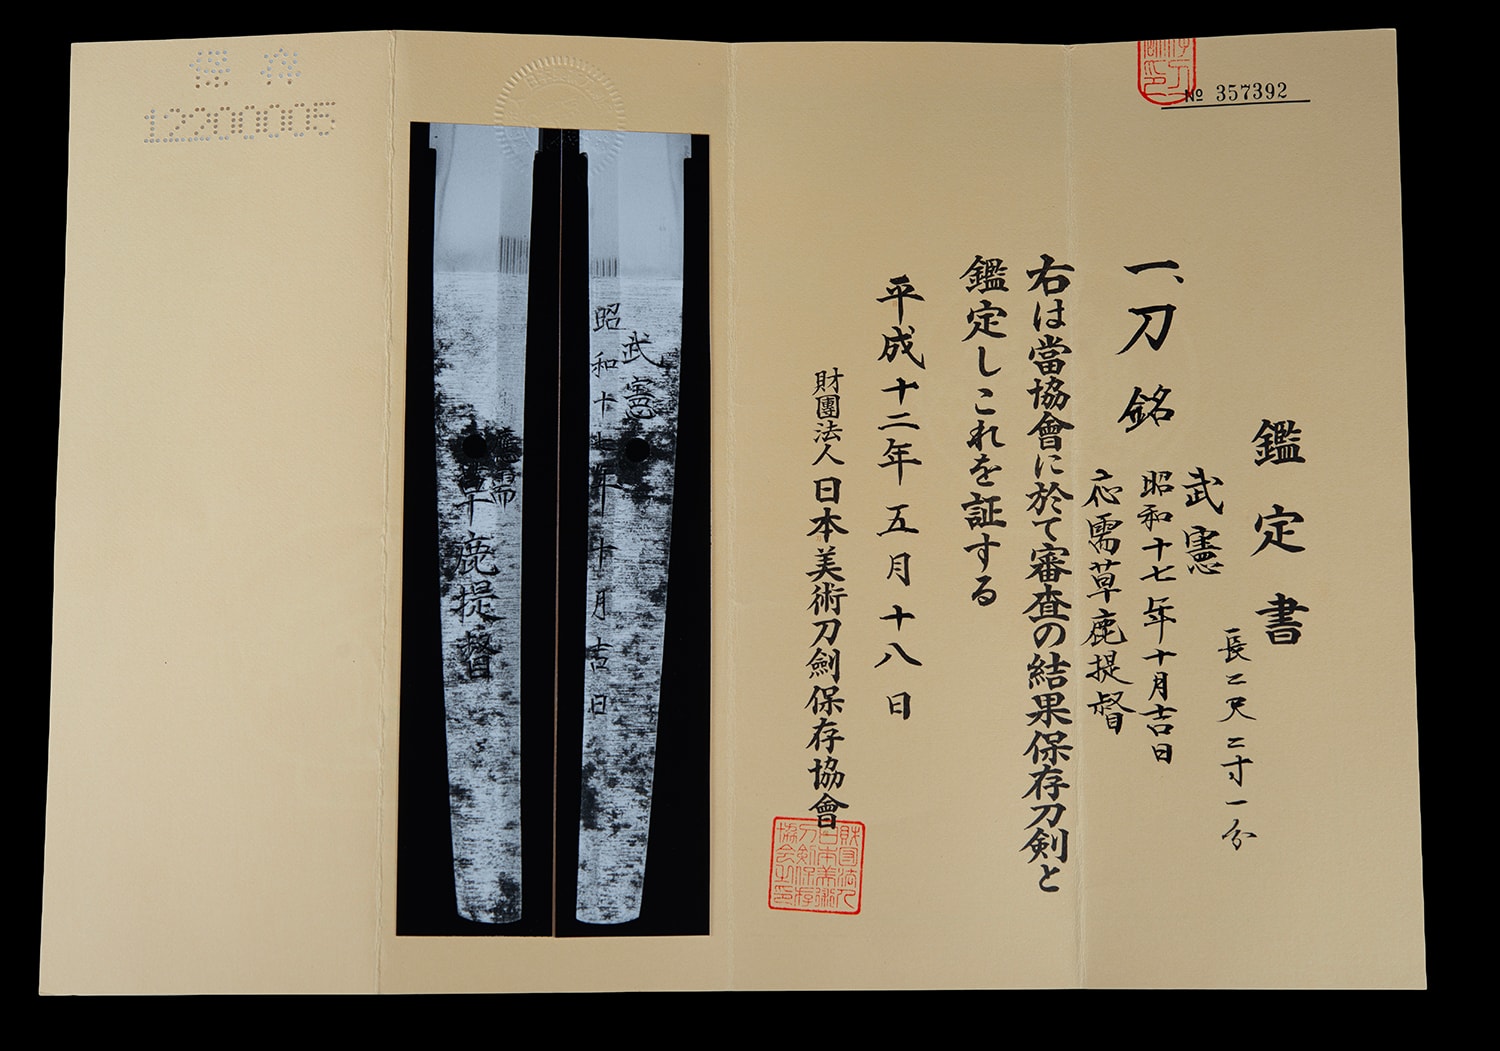 № 357392
鑑定書
一、刀 銘
長二尺二寸一分
武憲
昭和十七年十月吉日
応需草鹿提督
右は當協會に於て審査の結果保存刀剣と
鑑定しこれを証する
平成十二年五月十八日
財團法人日本美術刀劍保存協會
財団法人日本美術刀剣保存協会之印
武憲
昭和十七年十月吉日
應需
草鹿提督
保存
12200005